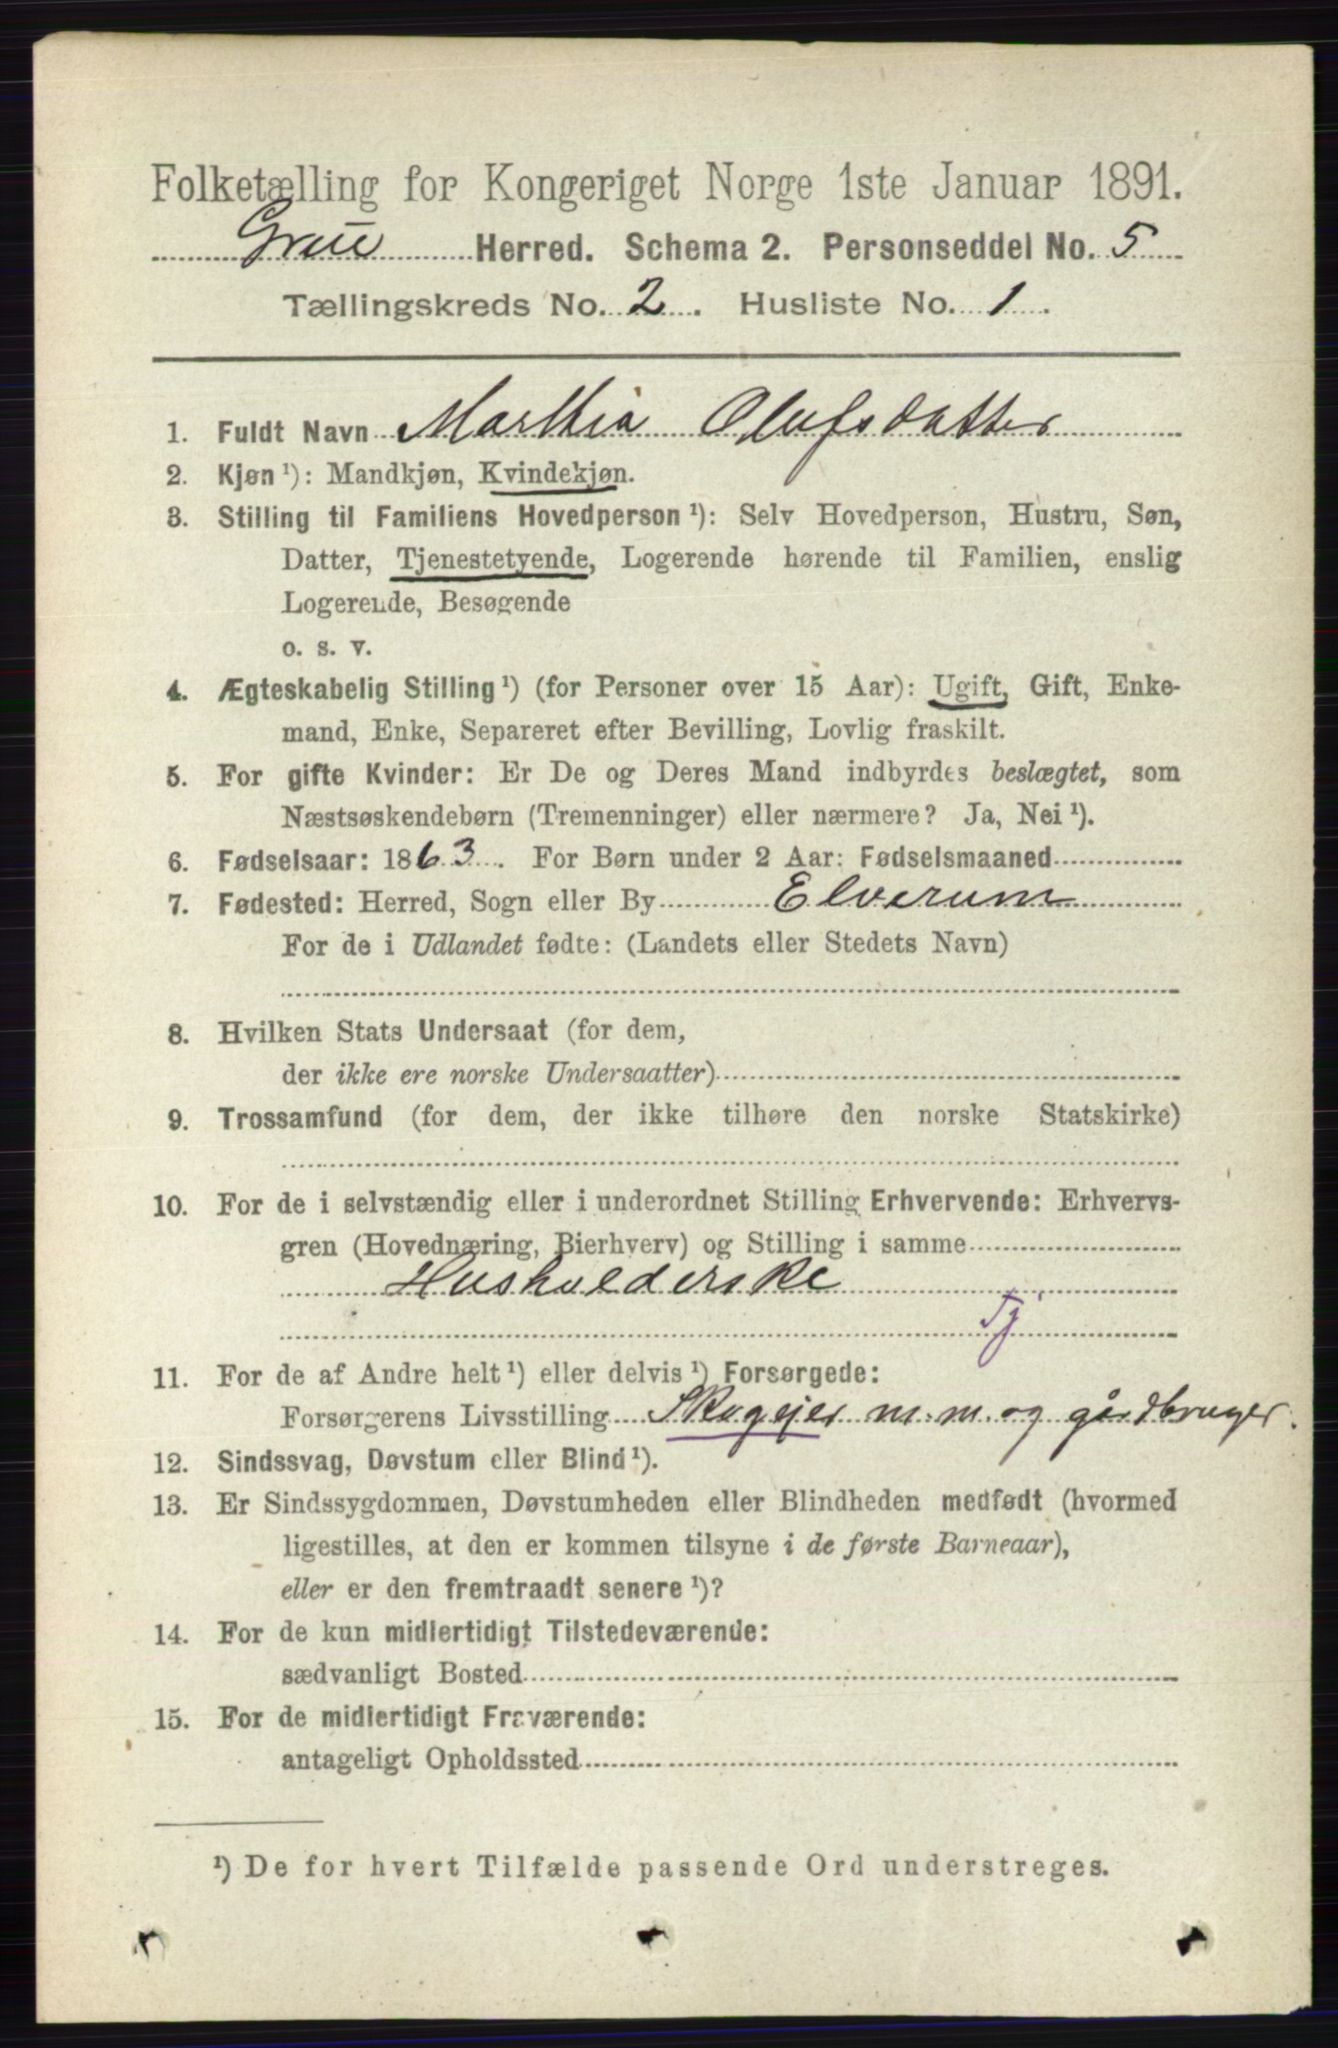 Folketælling for Kongeriget Norge 1ste Januar 1891.
Grue Herred. Schema 2. Personseddel No. 5
Tællingskreds No. 2. Husliste No. 1.
1. Fuldt Navn Marthia Olufsdatter
2. Kjøn ¹): Mandkjøn, Kvindekjøn.
3. Stilling til Familiens Hovedperson ¹): Selv Hovedperson, Hustru, Søn,
Datter, Tjenestetyende, Logerende hørende til Familien, enslig
Logerende, Besøgende
o. s. v.
4. Ægteskabelig Stilling ¹) (for Personer over 15 Aar): Ugift, Gift, Enke-
mand, Enke, Separeret efter Bevilling, Lovlig fraskilt.
5. For gifte Kvinder: Er De og Deres Mand indbyrdes beslægtet, som
Næstsøskendebørn (Tremenninger) eller nærmere? Ja, Nei ¹).
6. Fødselsaar: 1863. For Børn under 2 Aar: Fødselsmaaned
7. Fødested: Herred, Sogn eller By Elverum
For de i Udlandet fødte: (Landets eller Stedets Navn)
8. Hvilken Stats Undersaat (for dem,
der ikke ere norske Undersaatter)
9. Trossamfund (for dem, der ikke tilhøre den norske Statskirke)
10. For de i selvstændig eller i underordnet Stilling Erhvervende: Erhvervs-
gren (Hovednæring, Bierhverv) og Stilling i samme
Husholderske
Tj
11. For de af Andre helt ¹) eller delvis ¹) Forsørgede:
Forsørgerens Livsstilling Skogejer m. m. og gårdbruger.
12. Sindssvag, Døvstum eller Blind ¹).
13. Er Sindssygdommen, Døvstumheden eller Blindheden medfødt (hvormed
ligestilles, at den er kommen tilsyne i de første Barneaar),
eller er den fremtraadt senere ¹)?
14. For de kun midlertidigt Tilstedeværende:
sædvanligt Bosted
15. For de midlertidigt Fraværende:
antageligt Opholdssted
¹) De for hvert Tilfælde passende Ord understreges.